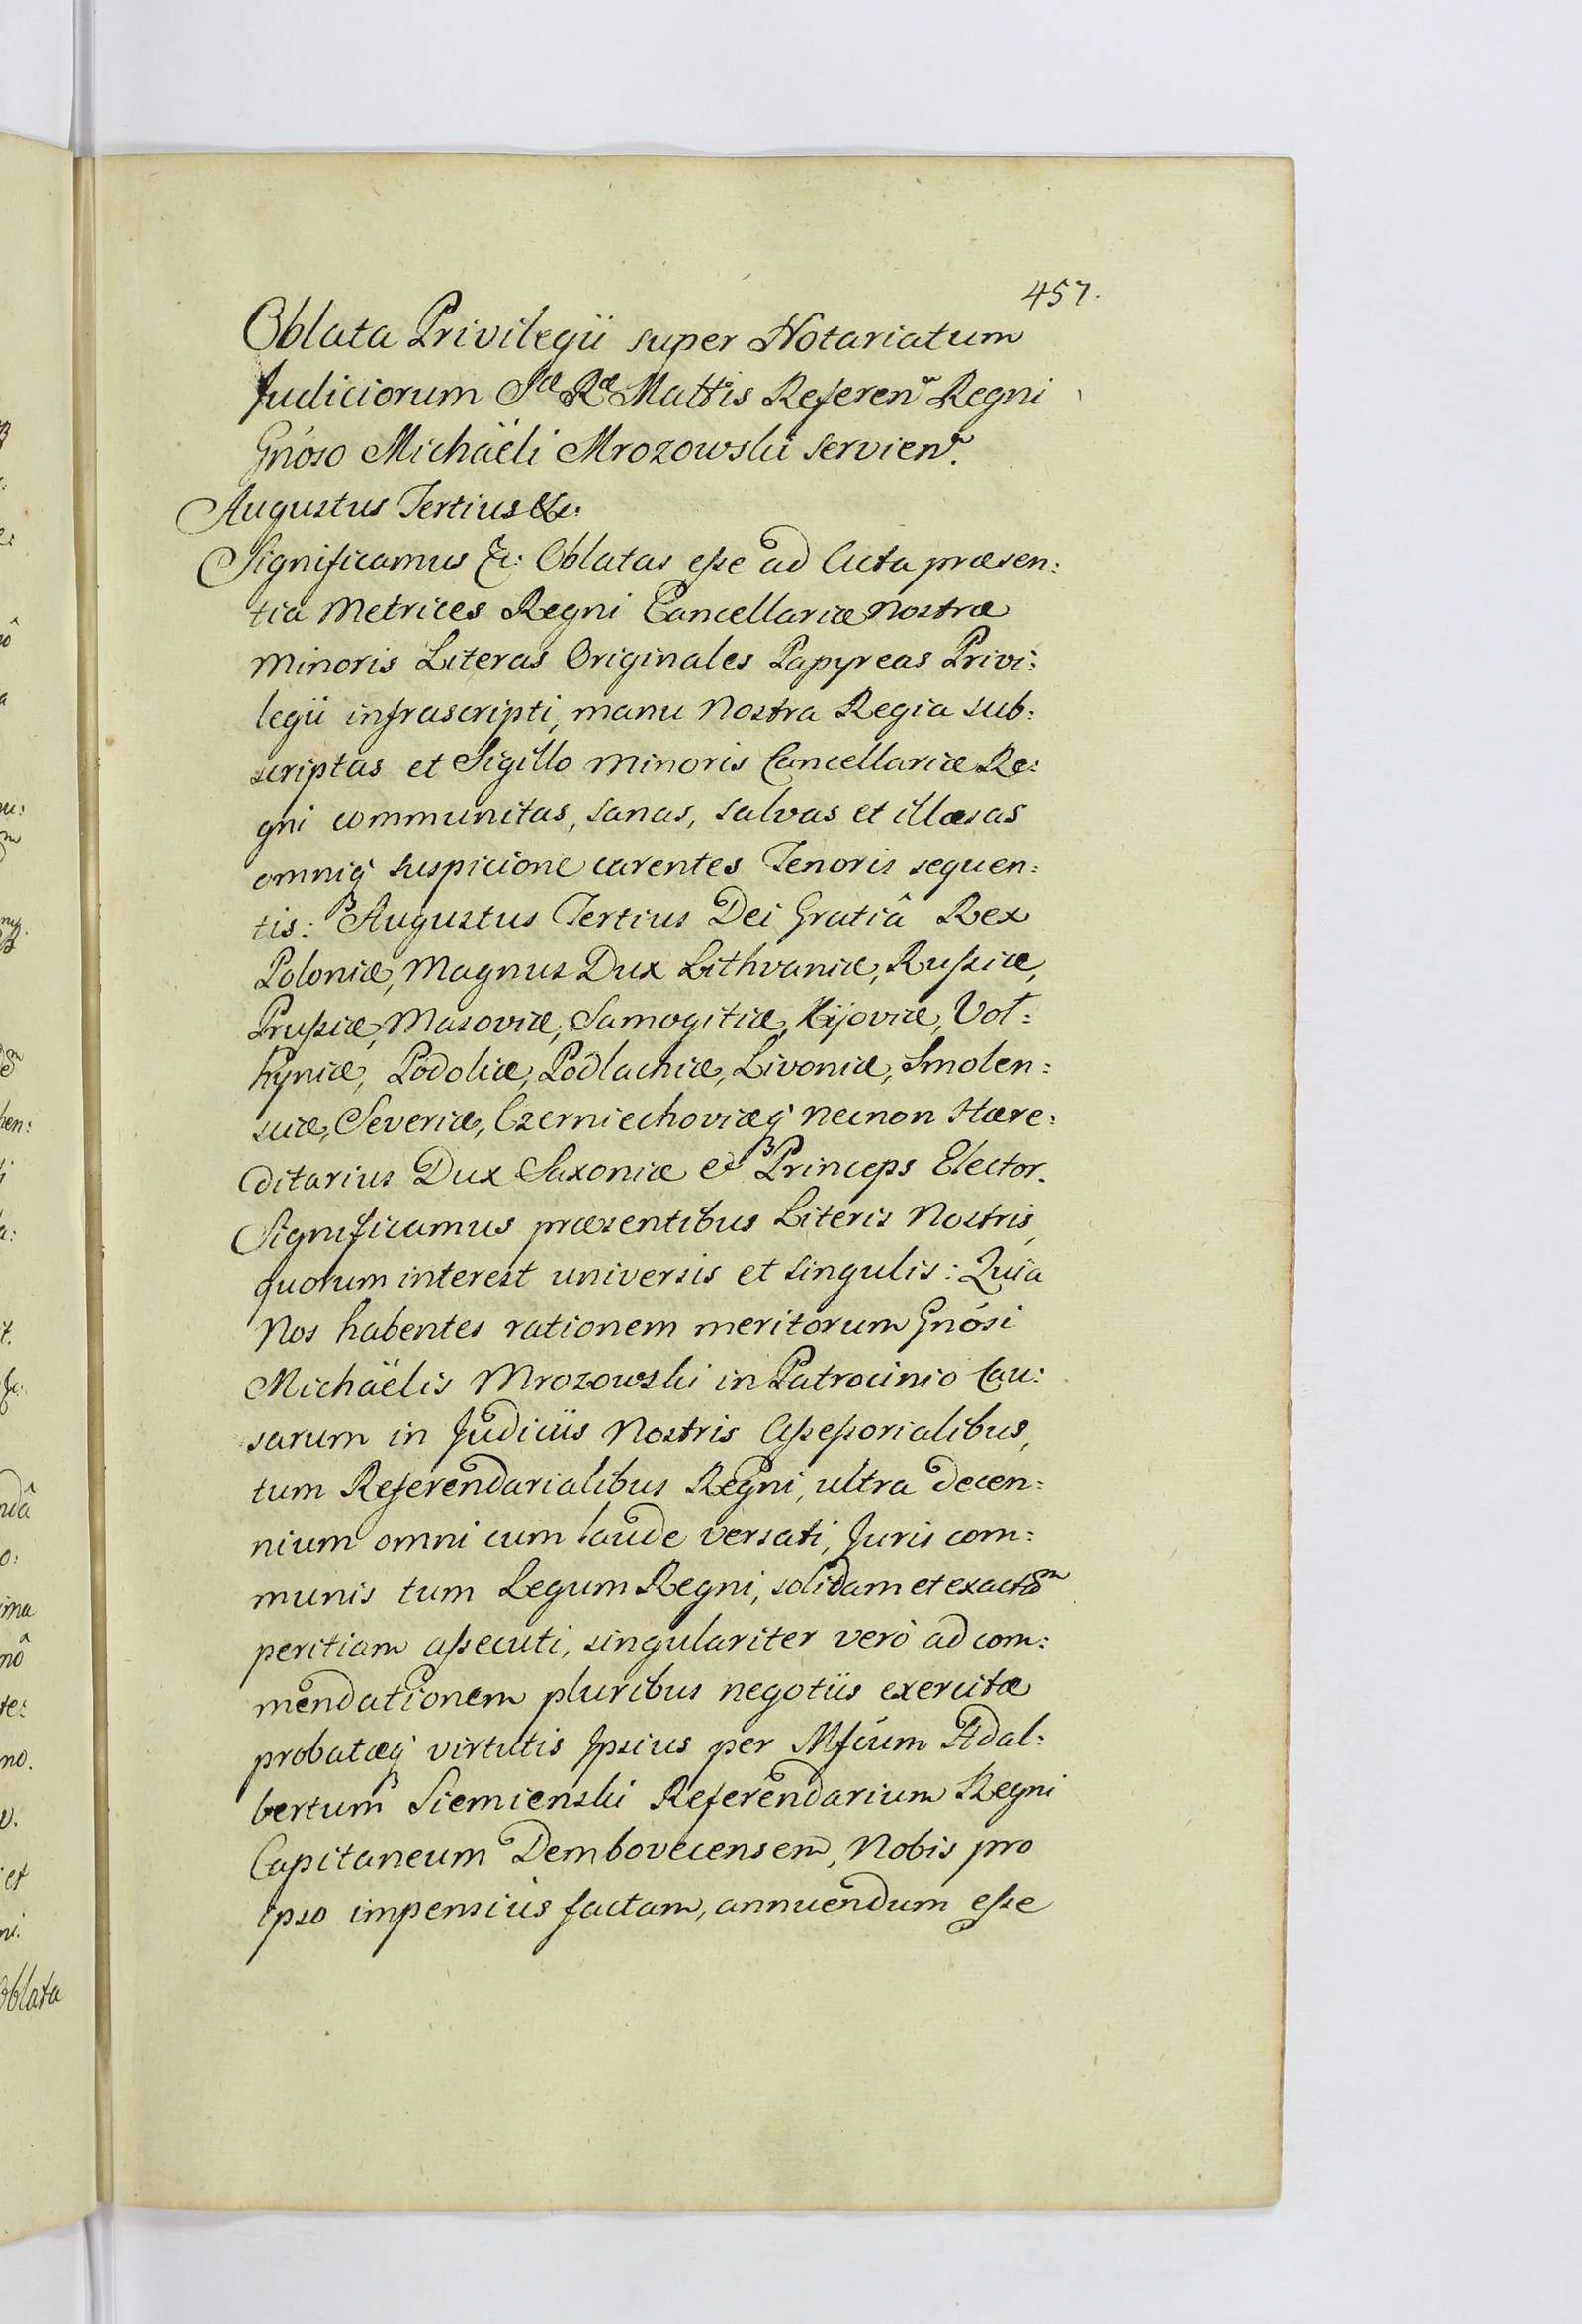 457.
Oblata Privilegii super Notariatum
Judiciorum Sæ Ræ Mattis Referen. Regni
Gnóso Michäéli Mrozowski servien.
Augustus Tertius &c:
Significamus &c: Oblatas eſse ad Acta præsen:
tia Metrices Regni Cancellariæ Nostræ
Minoris Literas Originales Papyreas Privi:
legii infrascripti, manu Nostra Regia sub:
scriptas et Sigillo Minoris Cancellariæ Re:
gni communitas, sanas, salvas et illæsas
omniq́ suspicione carentes Tenoris sequen:
tis: Augustus Tertius Dei Gratiâ Rex
Poloniæ, Magnus Dux Lithvaniæ, Ruſsiæ,
Pruſsiæ, Masoviæ, Samogitiæ, Kijoviæ, Vol:
hyniæ, Podoliæ, Podlachiæ, Livoniæ, Smolen:
sciæ, Severiæ, Czerniechoviæq́ necnon Hære:
ditarius Dux Saxoniæ et Princeps Elector.
Significamus præsentibus Literis Nostris,
quorum interest universis et singulis: Quia
Nos habentes rationem meritorum Gnósi
Michäëlis Mrozowski in Patrocinio Cau:
sarum in Judiciis Nostris Aſseſsorialibus,
tum Referendarialibus Regni, ultra decen:
nium omni cum laude versati, Juris com:
munis tum Legum Regni, solidam et exactam
peritiam aſsecuti, singulariter verò ad com:
mendationem pluribus negotiis exercitæ
probatæq́ virtutis Ipsius per Mfcúm Adal:
bertum Siemienski Referendarium Regni
Capitaneum Dembovecensem, Nobis pro
ipso impensiùs factam, annuendum eſse
Oblata